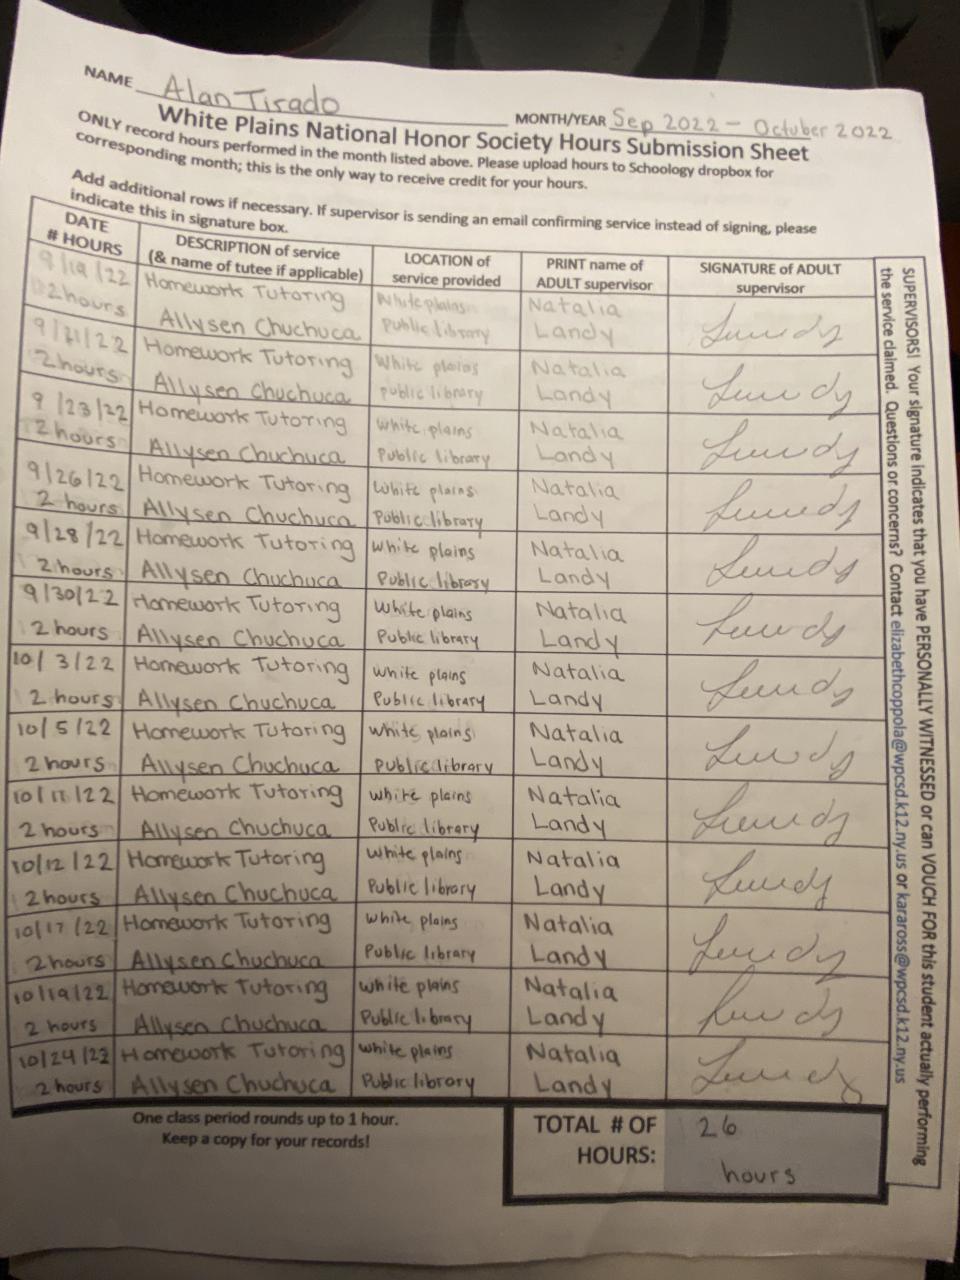 NAME Alan Tirado MONTH/YEAR Sep 2022 - October 2022
White Plains National Honor Society Hours Submission Sheet
ONLY record hours performed in the month listed above. Please upload hours to Schoology dropbox for
corresponding month; this is the only way to receive credit for your hours.
Add additional rows if necessary. If supervisor is sending an email confirming service instead of signing, please
indicate this in signature box.
DATE
# HOURS
DESCRIPTION of service
(& name of tutee if applicable)
LOCATION of
service provided
PRINT name of
ADULT supervisor
SIGNATURE of ADULT
supervisor
9/19/22 Homework Tutoring White plains Natalia
2 hours Allysen Chuchuca Public library Landy Landy
9/21/22 Homework Tutoring White plains Natalia
2 hours Allysen Chuchuca Public library Landy Landy
9/23/22 Homework Tutoring White plains Natalia
2 hours Allysen Chuchuca Public library Landy Landy
9/26/22 Homework Tutoring White plains Natalia
2 hours Allysen Chuchuca Public library Landy Landy
9/28/22 Homework Tutoring White plains Natalia
2 hours Allysen Chuchuca Public library Landy Landy
9/30/22 Homework Tutoring White plains Natalia
2 hours Allysen Chuchuca Public library Landy Landy
10/3/22 Homework Tutoring White plains Natalia
2 hours Allysen Chuchuca Public library Landy Landy
10/5/22 Homework Tutoring White plains Natalia
2 hours Allysen Chuchuca Public library Landy Landy
Homework Tutoring White plains Natalia
2 hours Allysen Chuchuca Public library Landy Landy
10/12/22 Homework Tutoring White plains Natalia
2 hours Allysen Chuchuca Public library Landy Landy
10/17/22 Homework Tutoring White plains Natalia
2 hours Allysen Chuchuca Public library Landy Landy
10/19/22 Homework Tutoring White plains Natalia
2 hours Allysen Chuchuca Public library Landy Landy
10/24/22 Homework Tutoring White plains Natalia
2 hours Allysen Chuchuca Public library Landy Landy
One class period rounds up to 1 hour.
Keep a copy for your records!
TOTAL # OF
HOURS:
26
hours
SUPERVISORS! Your signature indicates that you have PERSONALLY WITNESSED or can VOUCH FOR this student actually performing
the service claimed. Questions or concerns? Contact elizabethcoppola@wpcsd.k12.ny.us or karaross@wpcsd.k12.ny.us